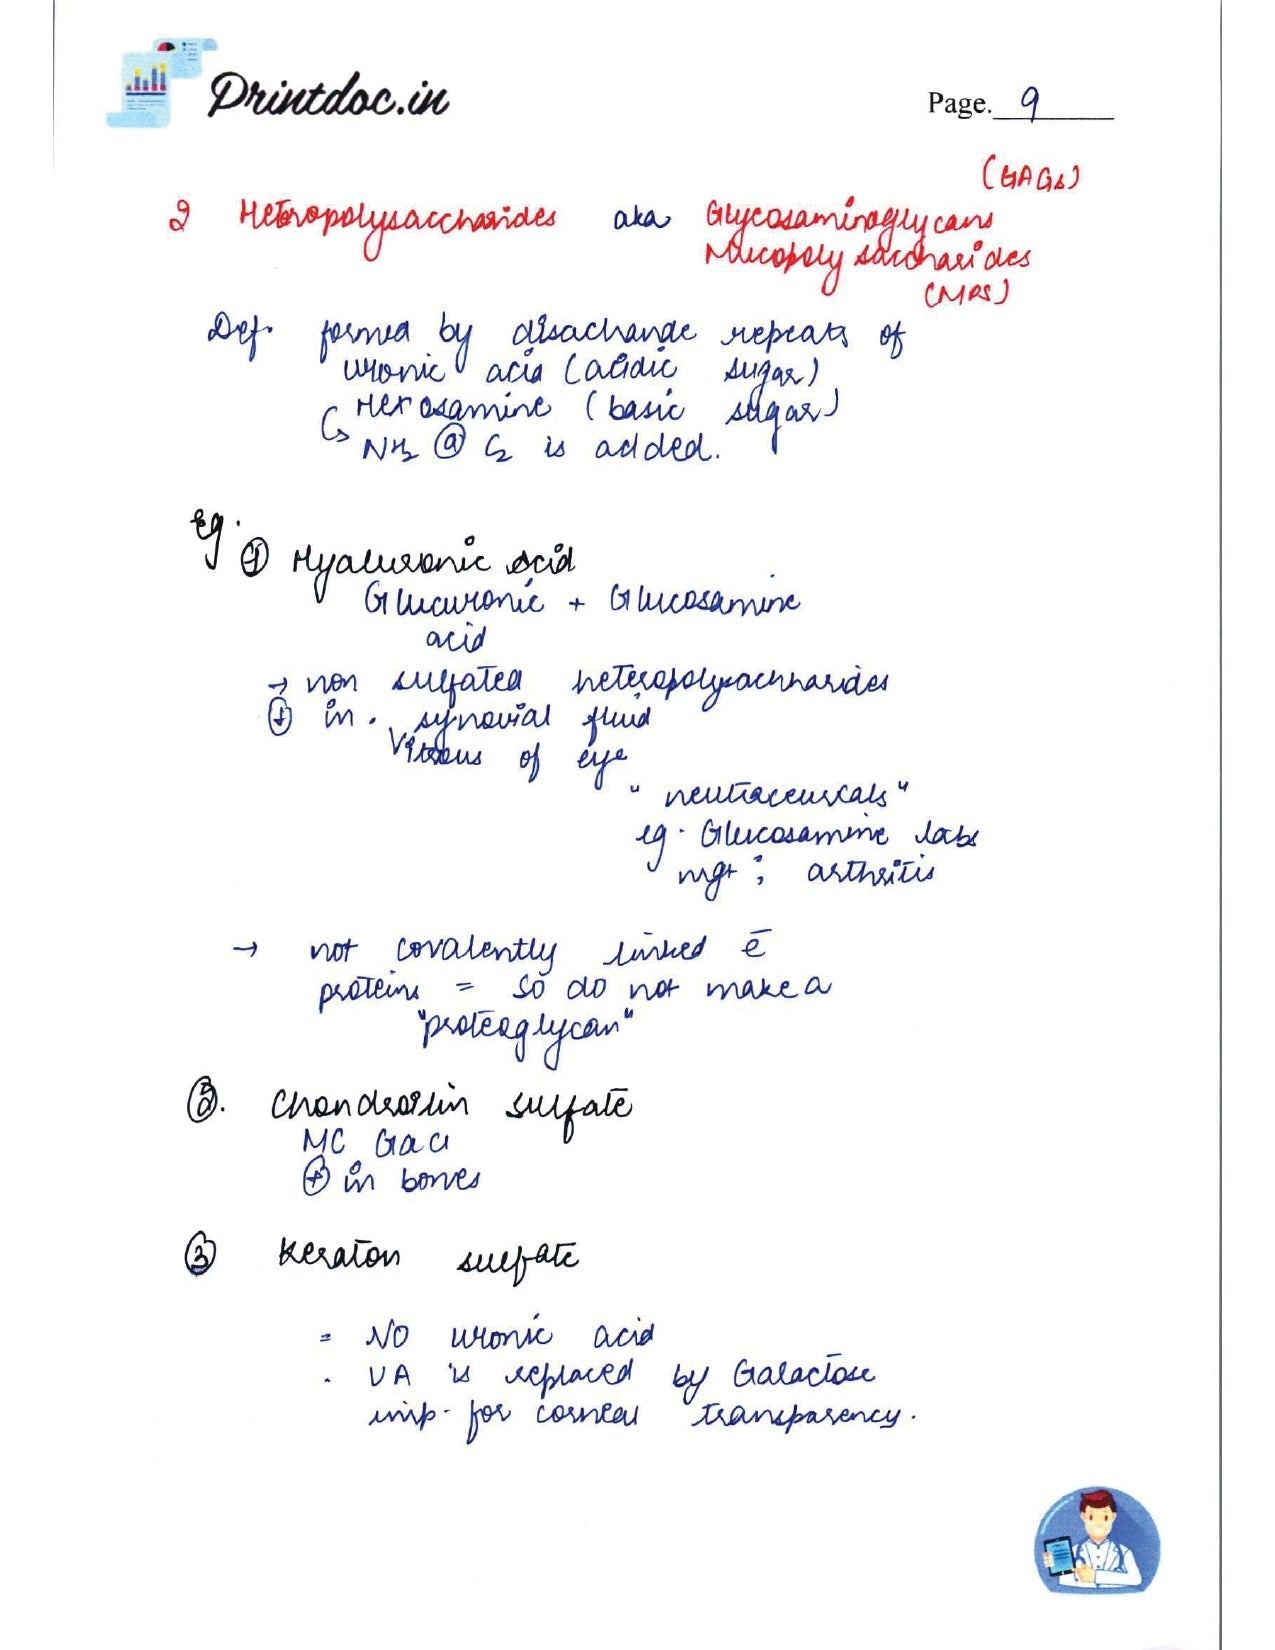 Printdoc.in
Page. 9
(GAGs)
2 Heteropolysaccharides aka Glycosaminoglycans
Mucopolysaccharides
(MPS)
Def. formed by disacharide repeats of
uronic acid (acidic sugar)
Hexosamine (basic sugar)
↳ NH2 @ C2 is added.
eg.
① Hyaluronic acid
Glucuronic + Glucosamine
acid
→ non sulfated heteropolysachharides
⊕ in . synovial fluid
Vitreous of eye
" neutraceuticals "
eg. Glucosamine tabs
mgt : arthritis
→ not covalently linked c̄
proteins = so do not make a
"proteoglycan"
②. Chondroitin sulfate
MC GAG
⊕ in bones
③ Keraton sulfate
= NO uronic acid
. UA is replaced by Galactose
imp. for corneal transparency.